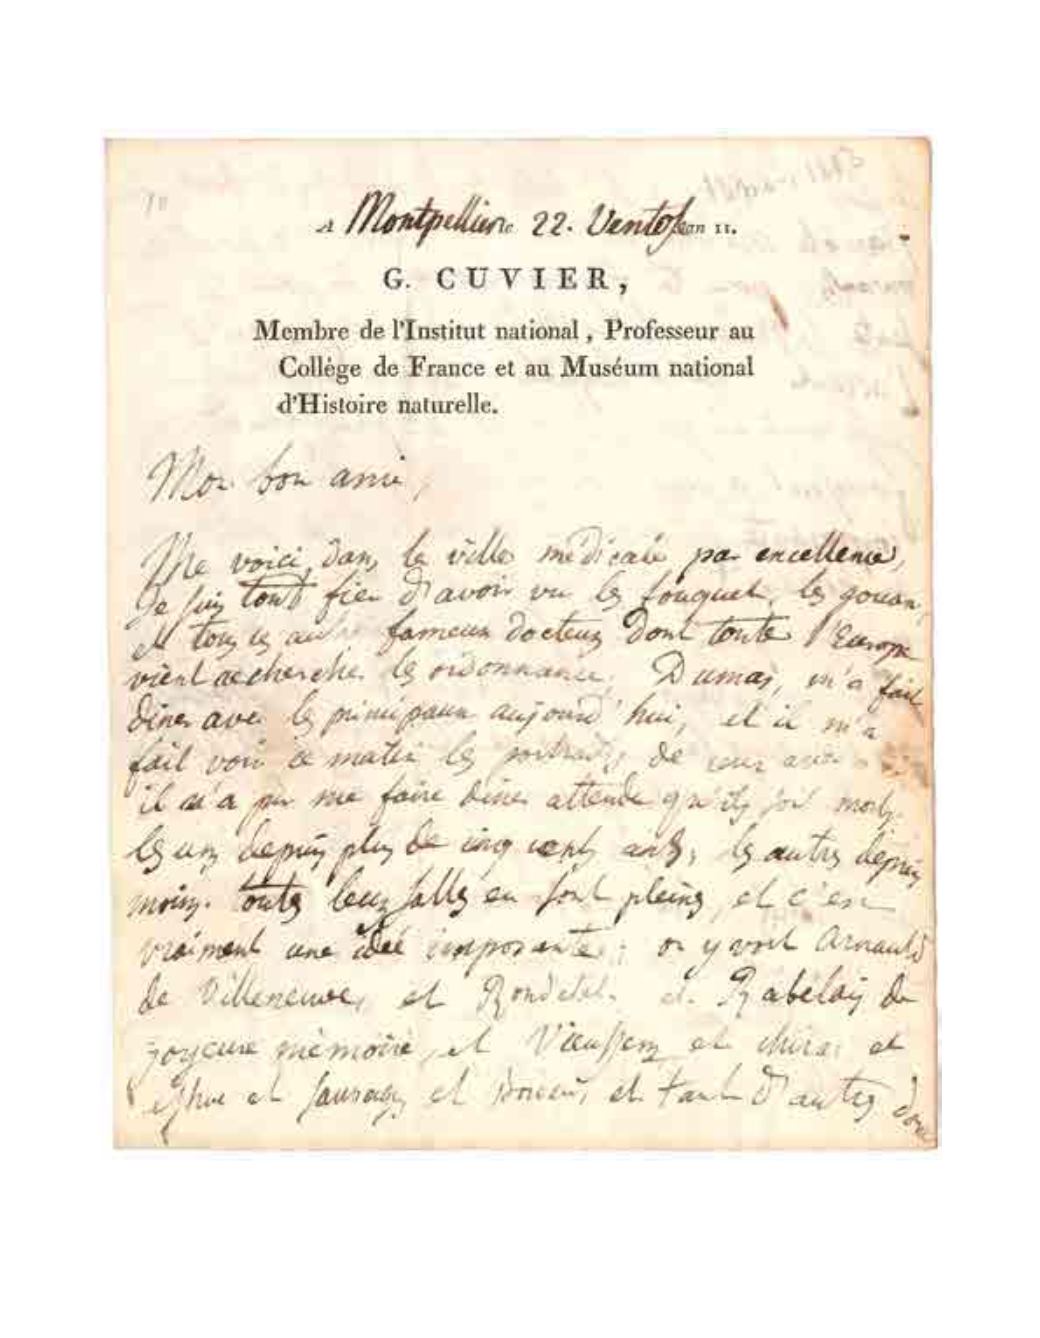 A Montpellier le 22. Ventose an 11.
G. CUVIER,
Membre de l'Institut national, Professeur au
Collège de France et au Muséum national
d'Histoire naturelle.
Mon bon ami,
Me voici dans la ville médicale par excellence,
Je suis tout fier d'avoir vu les fouquet, les gouan,
et tous ces autres fameux docteurs dont toute l'Europe
vient rechercher les ordonnances. Dumas, m'a fait
diner avec les principaux aujourd'hui, et il m'a
fait voir ce matin les portraits de ceux avec
il n'a pu me faire diner attendu qu'ils sont morts
les uns depuis plus de cinq cents ans, les autres depuis
moins. toutes leurs salles en sont pleines, et c'est
vraiment une idée imposante; on y voit Arnauld
de Villeneuve, et Rondelet, et Rabelais de
joyeuse mémoire, et Vieussens et chirac et
et Sauvages et et tant d'autres dont